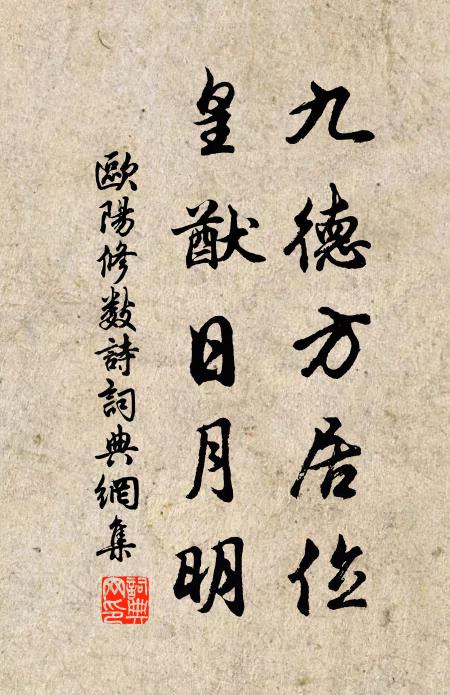 九德方居位
皇猷日月明
歐陽修數詩詞典網集
詞典网印